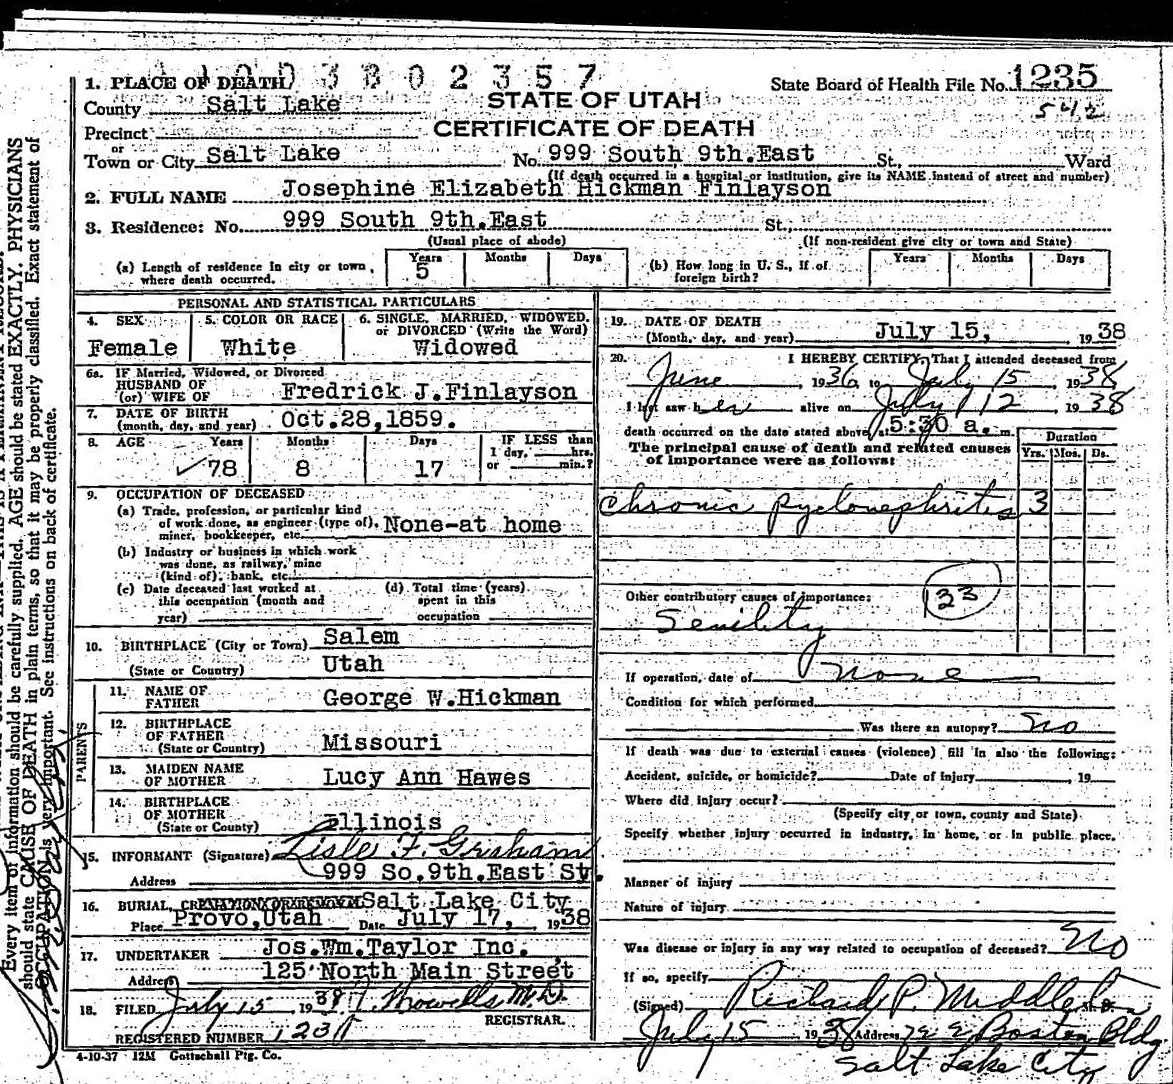 1003802357
1. PLACE OF DEATH
State Board of Health File No. 1235
County Salt Lake
STATE OF UTAH
542
Precinct
CERTIFICATE OF DEATH
or
Town or City Salt Lake No. 999 South 9th.East St., Ward
(If death occurred in a hospital or institution, give its NAME instead of street and number)
2. FULL NAME Josephine Elizabeth Hickman Finlayson
3. Residence: No. 999 South 9th.East St.,
(Usual place of abode) (If non-resident give city or town and State)
(a) Length of residence in city or town, where death occurred. Years 5 Months Days
(b) How long in U. S., if of foreign birth? Years Months Days
PERSONAL AND STATISTICAL PARTICULARS
4. SEX 5. COLOR OR RACE 6. SINGLE, MARRIED, WIDOWED, or DIVORCED (Write the Word)
Female White Widowed
6a. IF Married, Widowed, or Divorced
HUSBAND OF
(or) WIFE OF Fredrick J.Finlayson
7. DATE OF BIRTH
(month, day, and year) Oct.28,1859.
8. AGE Years Months Days IF LESS than
1 day, hrs.
78 8 17 or min.?
9. OCCUPATION OF DECEASED
(a) Trade, profession, or particular kind
of work done, as engineer (type of), None-at home
miner, bookkeeper, etc.
(b) Industry or business in which work
was done, as railway, mine
(kind of), bank, etc.
(c) Date deceased last worked at
this occupation (month and
year)
(d) Total time (years)
spent in this
occupation
10. BIRTHPLACE (City or Town) Salem
(State or Country) Utah
PARENTS
11. NAME OF
FATHER George W.Hickman
12. BIRTHPLACE
OF FATHER
(State or Country) Missouri
13. MAIDEN NAME
OF MOTHER Lucy Ann Hawes
14. BIRTHPLACE
OF MOTHER
(State or County) Illinois
15. INFORMANT (Signature) Lisle F. Graham
Address 999 So.9th.East St.
16. BURIAL, CREMATION OR REMOVAL Salt Lake City
Place Provo,Utah Date July 17, 1938
17. UNDERTAKER Jos.Wm.Taylor Inc.
Address 125 North Main Street
18. FILED July 15 1938 Howells M.D.
REGISTRAR.
REGISTERED NUMBER
4-10-37 12M Gottschall Ptg. Co.
19. DATE OF DEATH
(Month, day, and year) July 15, 1938
20. I HEREBY CERTIFY, That I attended deceased from
June, 1936, to July 15 1938
I last saw her alive on July 12 1938
death occurred on the date stated above, at 5:30 a. m.
The principal cause of death and related causes
of importance were as follows:
Duration
Yrs. Mos. Ds.
Chronic pyelonephritis 3
Other contributory causes of importance: 133
Senility
If operation, date of none
Condition for which performed
Was there an autopsy? No
If death was due to external causes (violence) fill in also the following:
Accident, suicide, or homicide? Date of injury 19
Where did injury occur?
(Specify city or town, county and State)
Specify whether injury occurred in industry, in home, or in public place.
Manner of injury
Nature of injury
Was disease or injury in any way related to occupation of deceased? No
If so, specify
(Signed) Richard P. Middleton
July 15 1938 Address Boston Bldg.
Salt Lake City
Every item of information should be carefully supplied. AGE should be stated EXACTLY. PHYSICIANS
should state CAUSE OF DEATH in plain terms, so that it may be properly classified. Exact statement of
OCCUPATION is very important. See instructions on back of certificate.